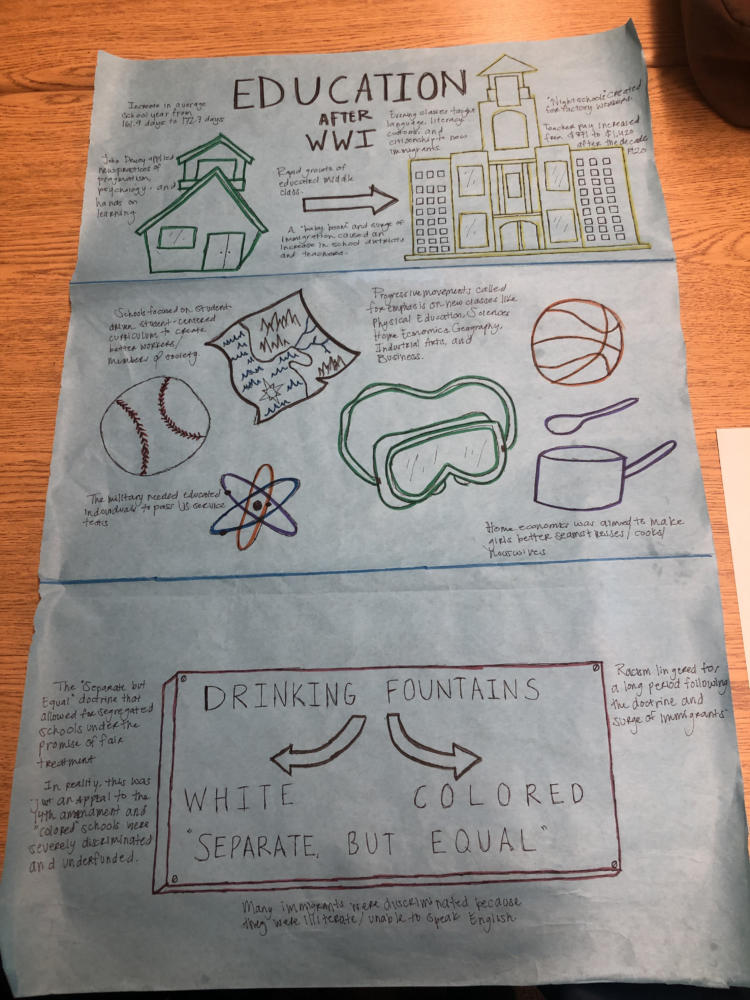 EDUCATION
AFTER
WWI
Increase in average
school year from
161.9 days to 172.7 days
John Dewey applied
new practices of
pragmatism,
psychology, and
hands on
learning.
Rapid growth of
educated middle
class.
A "baby boom" and surge of
immigration caused an
increase in school districts
and teachers.
Evening classes taught
language, literacy,
customs, and
citizenship to new
immigrants.
"Night schools" created
for factory workers.
Teacher pay increased
from $871 to $1,420
after the decade
1920
Schools focused on student-
driven student-centered
curriculum to create
better workers/
members of society
Progressive movements called
for emphasis on new classes like
Physical Education, Sciences
Home Economics, Geography,
Industrial Arts, and
Business.
The military needed educated
individuals to pass US service
tests
Home economics was aimed to make
girls better seamstresses/cooks/
housewives
The "Separate but
Equal" doctrine that
allowed for segregated
schools under the
promise of fair
treatment
In reality, this was
just an appeal to the
14th amendment and
"colored" schools were
severely discriminated
and underfunded.
DRINKING FOUNTAINS
WHITE COLORED
"SEPARATE, BUT EQUAL"
Racism lingered for
a long period following
the doctrine and
surge of immigrants
Many immigrants were discriminated because
they were illiterate/unable to speak English